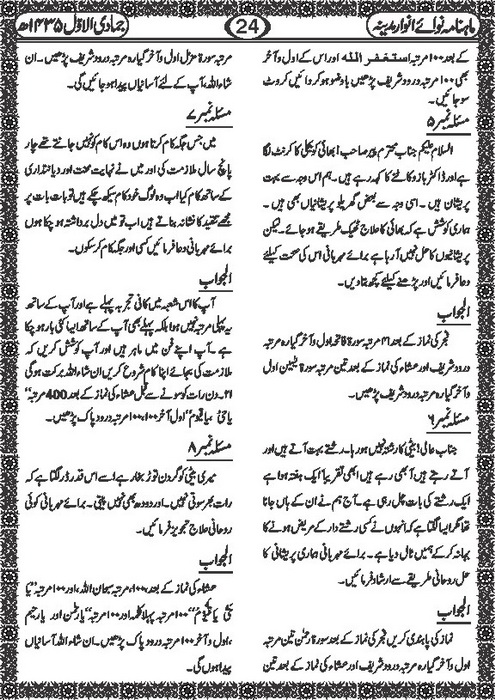 ماہنامہ نوائے انوار مدینہ
24
جمادی الاوّل ۱۴۳۵ھ
کے بعد ۱۰۰ مرتبہ استغفر اللہ اور اس کے اول و آخر
بھی ۱۰۰ مرتبہ درود شریف پڑھیں باوضو ہو کر دائیں کروٹ
سو جائیں۔
مسئلہ نمبر ۵
السلام علیکم جناب محترم پیر صاحب! بھائی کو بجلی کا کرنٹ لگا
ہے اور ڈاکٹر بازو کاٹنے کا کہہ رہے ہیں۔ ہم اس وجہ سے بہت
پریشان ہیں۔ اسی وجہ سے بعض گھریلو پریشانیاں بھی ہیں۔
ہماری کوشش ہے کہ بھائی کا علاج ٹھیک طریقے ہو جائے۔ لیکن
پریشانیوں کا حل نہیں آ رہا ہے برائے مہربانی اس کی صحت کیلئے
دعا فرمائیں اور پڑھنے کیلئے کچھ بتا دیں۔
الجواب
فجر کی نماز کے بعد ۴۱ مرتبہ سورۃ فاتحہ اول و آخر گیارہ مرتبہ
درود شریف اور عشاء کی نماز کے بعد تین مرتبہ سورۃ یٰسین اول
و آخر گیارہ مرتبہ درود شریف پڑھیں۔
مسئلہ نمبر ۶
جناب عالی! بیٹی کا رشتہ نہیں ہو رہا۔ رشتے بہت آتے ہیں اور
آتے رہتے ہیں آ بھی رہے ہیں ابھی تقریباً ایک ہفتہ ہوا ہے
ایک رشتے کی بات چل رہی ہے۔ آج ہم نے ان کے ہاں جانا
تھا مگر ایسا لگتا ہے کہ انہوں نے کسی رشتے دار کے مریض ہونے کا
بہانہ کر کے ہمیں ٹال دیا ہے۔ برائے مہربانی ہماری پریشانی کا
حل روحانی طریقے سے ارشاد فرمائیں۔
الجواب
نماز کی پابندی کریں فجر کی نماز کے بعد سورۃ رحمٰن تین مرتبہ
اول و آخر گیارہ مرتبہ درود شریف اور عشاء کی نماز کے بعد تین
مرتبہ سورۃ مزمل اول و آخر گیارہ مرتبہ درود شریف پڑھیں۔ ان
شاء اللہ، آپ کے لئے آسانیاں پیدا ہو جائیں گی۔
مسئلہ نمبر ۷
میں جس جگہ کام کرتا ہوں وہ اس کام کو نہیں جانتے تھے چار
پانچ سال ملازمت کی اور میں نے نہایت محنت اور دیانتداری
کے ساتھ کام کیا اب وہ لوگ خود کام سیکھ چکے ہیں تو بات بات پر
مجھے تنقید کا نشانہ بناتے ہیں اب تو میں دل برداشتہ ہو چکا ہوں
برائے مہربانی دعا فرمائیں کسی اور جگہ کام کر سکوں۔
الجواب
آپ کا اس شعبہ میں کافی تجربہ پہلے ہے اور آپ کے ساتھ
یہ پہلی مرتبہ نہیں ہوا بلکہ پہلے بھی آپ کے ساتھ ایسا کئی بار ہو چکا
ہے۔ آپ اپنے فن میں ماہر ہیں اور آپ کوشش کریں کہ
ملازمت کی بجائے اپنا کام شروع کریں ان شاء اللہ برکت ہو گی
۲۱۔ دن رات کو سونے سے قبل عشاء کی نماز کے بعد 400 مرتبہ "
یا حیّ یا قیّوم" اول آخر ۱۰۰، ۱۰۰ مرتبہ درود پاک پڑھیں۔
مسئلہ نمبر ۸
میری بیٹی کو گردن توڑ بخار ہے! اسے اس قدر ڈر لگتا ہے کہ
رات بھر سوتی نہیں۔ اور دودھ بھی نہیں پیتی۔ برائے مہربانی کوئی
روحانی علاج تجویز فرمائیں۔
الجواب
عشاء کی نماز کے بعد، ۱۰۰ مرتبہ سبحان اللہ، اور ۱۰۰ مرتبہ "یا
حیّ یا قیّوم" ۱۰۰ مرتبہ پہلا کلمہ اور ۱۰۰ مرتبہ "یا رحمٰن اور یا رحیم
، اول و آخر ۱۰۰ مرتبہ درود پاک پڑھیں۔ ان شاء اللہ آسانیاں
پیدا ہوں گی۔